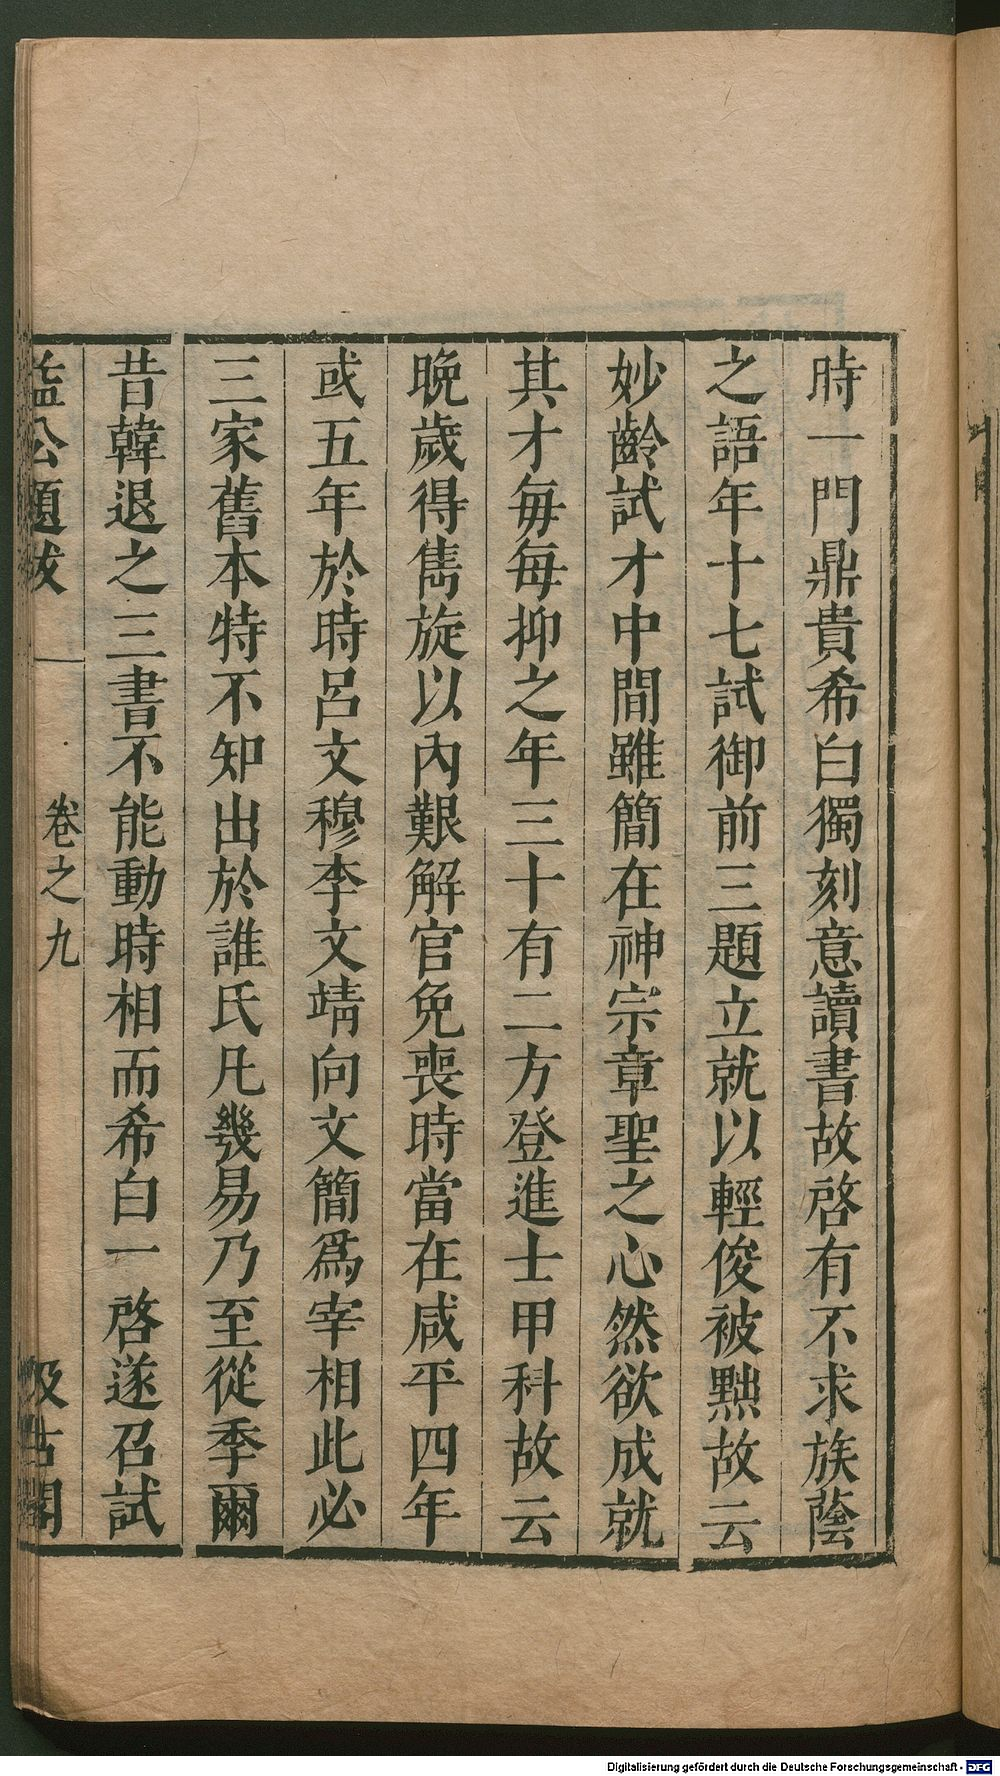 時一門鼎貴希白獨刻意讀書故啓有不求族蔭
之語年十七試御前三題立就以輕俊被黜故云
妙齡試才中間雖簡在神宗章聖之心然欲成就
其才每每抑之年三十有二方登進士甲科故云
晚歲得雋旋以內艱解官免喪時當在咸平四年
或五年於時呂文穆李文靖向文簡爲宰相此必
三家舊本特不知出於誰氏凡幾易乃至從季爾
昔韓退之三書不能動時相而希白一啓遂召試
益公題跋 卷之九 汲古閣
Digitalisierung gefördert durch die Deutsche Forschungsgemeinschaft - DFG